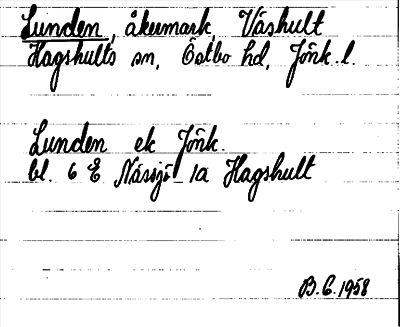 Lunden, åkermark, Våshult
Hagshults sn, Östbo hd, Jönk. l.
Lunden ek Jönk.
bl. 6 E Nässjö 1a Hagshult
B.G. 1958